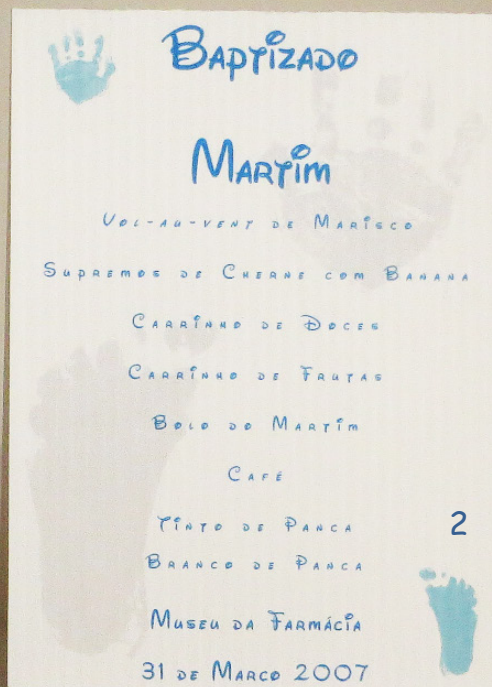 Baptizado
Martim
Vol-au-vent de Marisco
Supremos de Cherne com Banana
Carrinho de Doces
Carrinho de Frutas
Bolo do Martim
Café
Tinto de Panca
2
Branco de Panca
Museu da Farmácia
31 de Março 2007